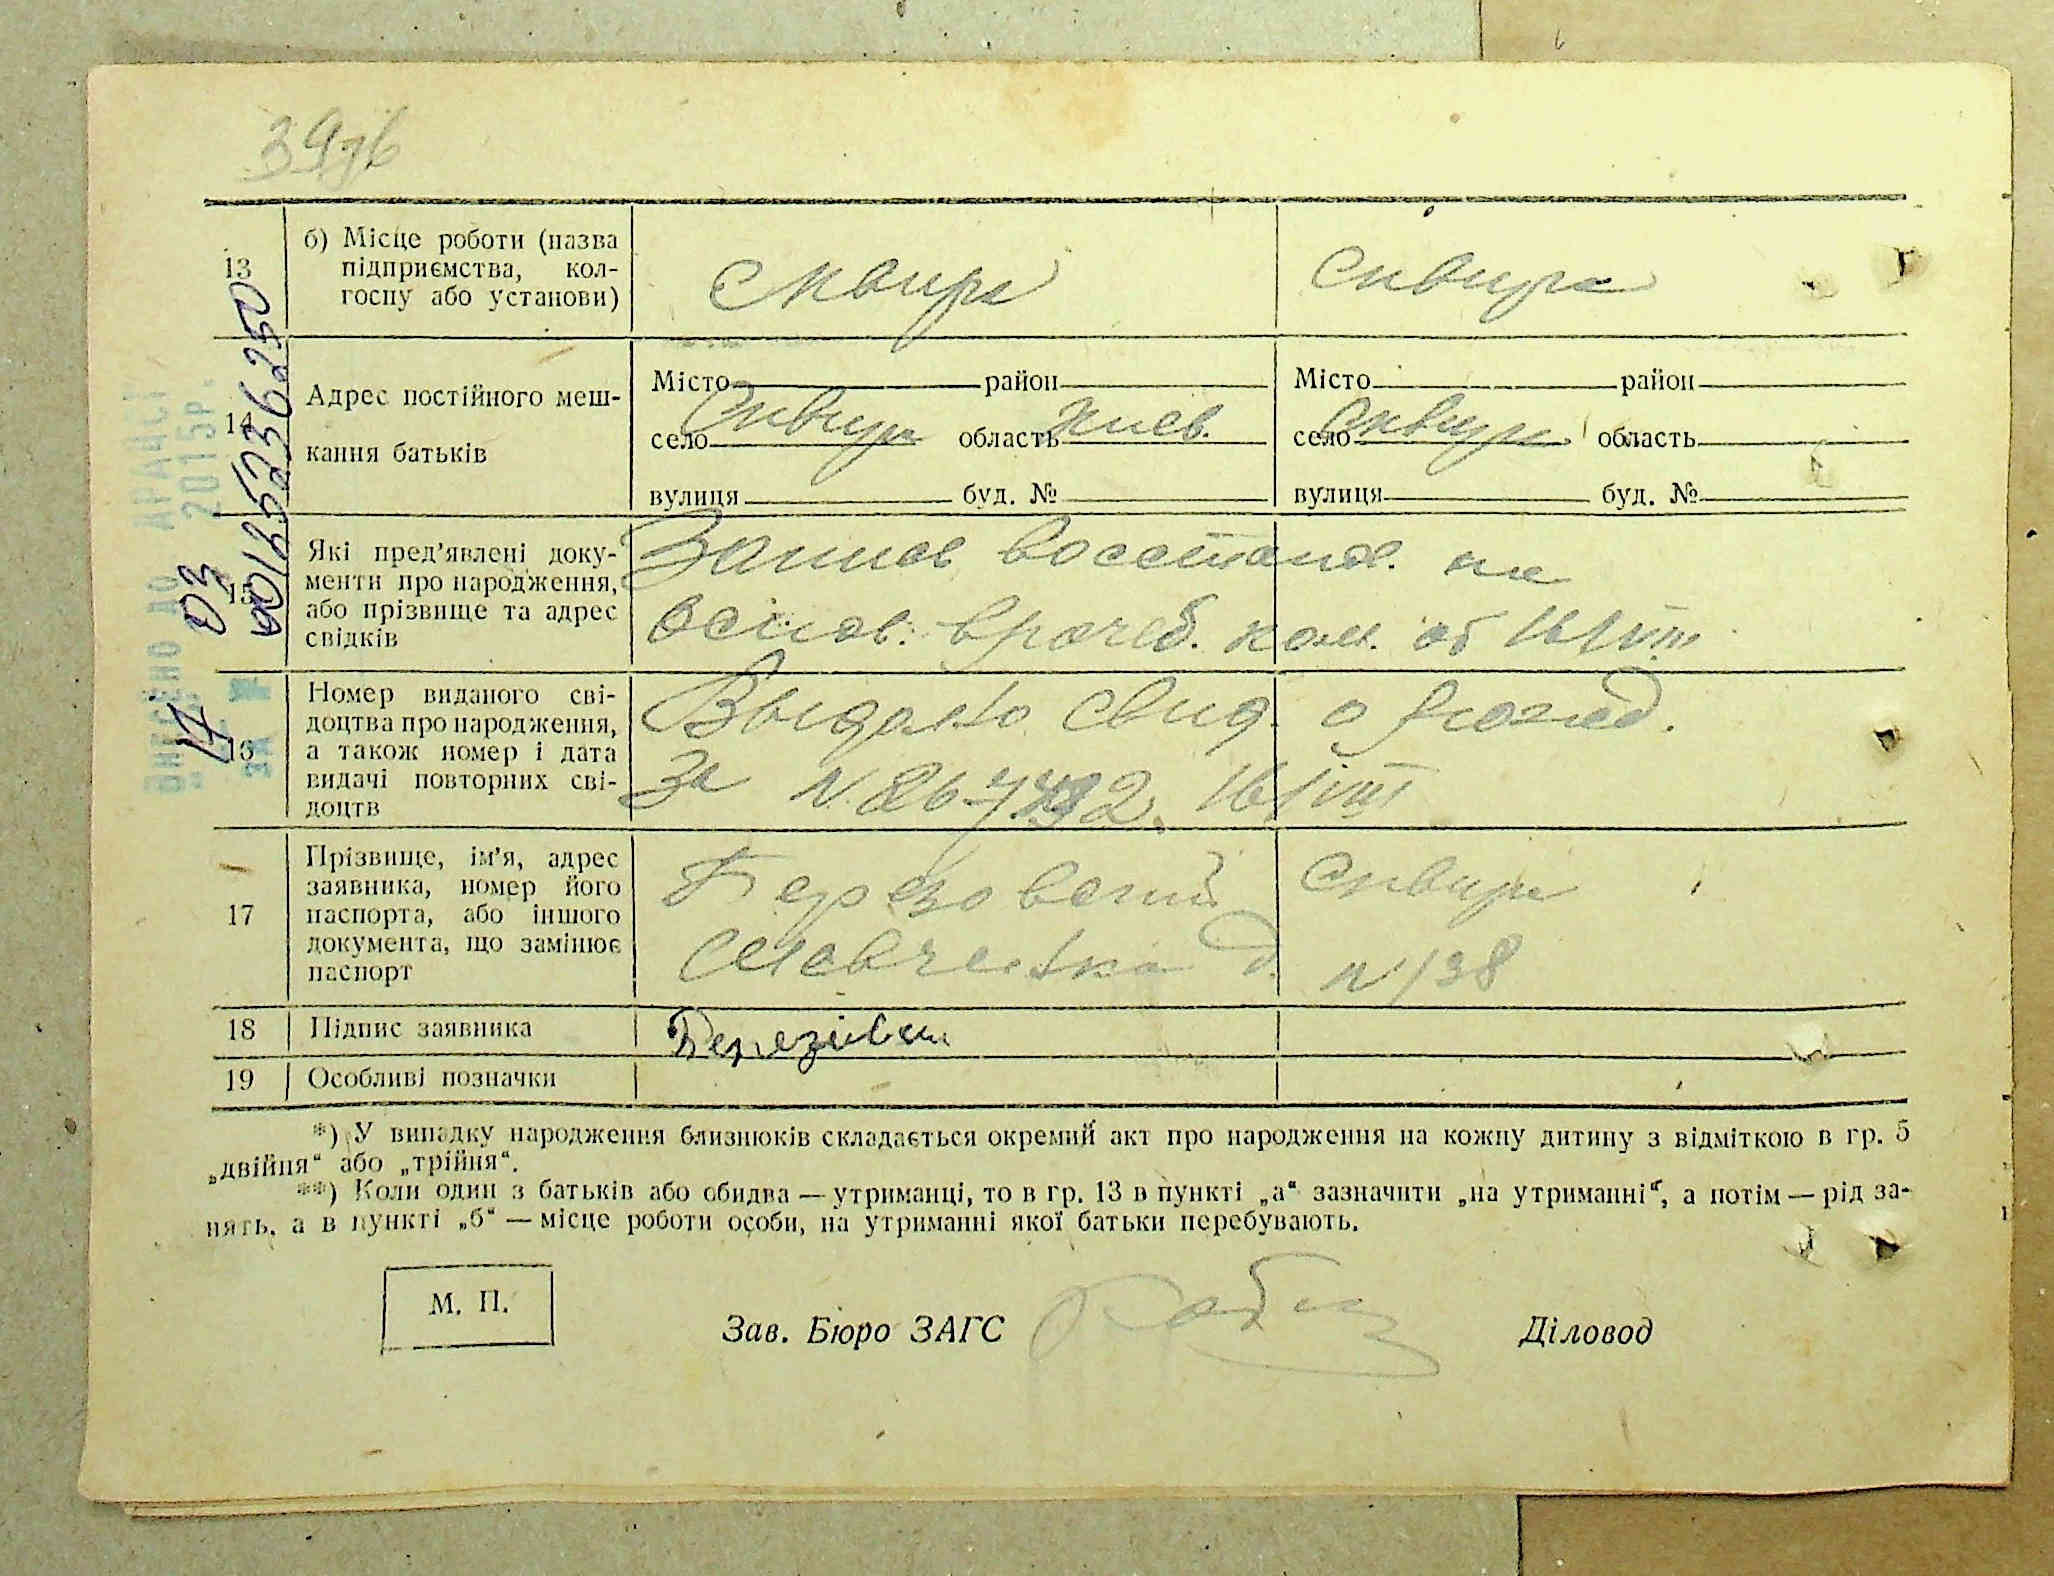 13
б) Місце роботи (назва
підприємства, кол-
госпу або установи)
Сквира
Сквира
14
Адрес постійного меш-
кання батьків
Місто район
село Сквира область Киев.
вулиця буд. №
Місто район
село Сквира область
вулиця буд. №
15
Які пред’явлені доку-
менти про народження,
або прізвище та адрес
свідків
Запись восстанов. на
основ. врачеб. ком. от 16/VIII
16
Номер виданого сві-
доцтва про народження,
а також номер і дата
видачі повторних сві-
доцтв
Выдано свид. о рожд.
За N 16/VIII
17
Прізвище, ім’я, адрес
заявника, номер його
паспорта, або іншого
документа, що замінює
паспорт
Березовский
Шевченка
Сквира
N 138
18
Підпис заявника
19
Особливі позначки
*) У випадку народження близнюків складається окремий акт про народження на кожну дитину з відміткою в гр. 5
„двійня“ або „трійня“.
**) Коли один з батьків або обидва — утриманці, то в гр. 13 в пункті „а“ зазначити „на утриманні“, а потім — рід за-
нять, а в пункті „б“ — місце роботи особи, на утриманні якої батьки перебувають.
М. П.
Зав. Бюро ЗАГС
Діловод
ВНЕСЕНО ДО ДРАЦСГ
ЗА №
00125236250
17 03 2015р.